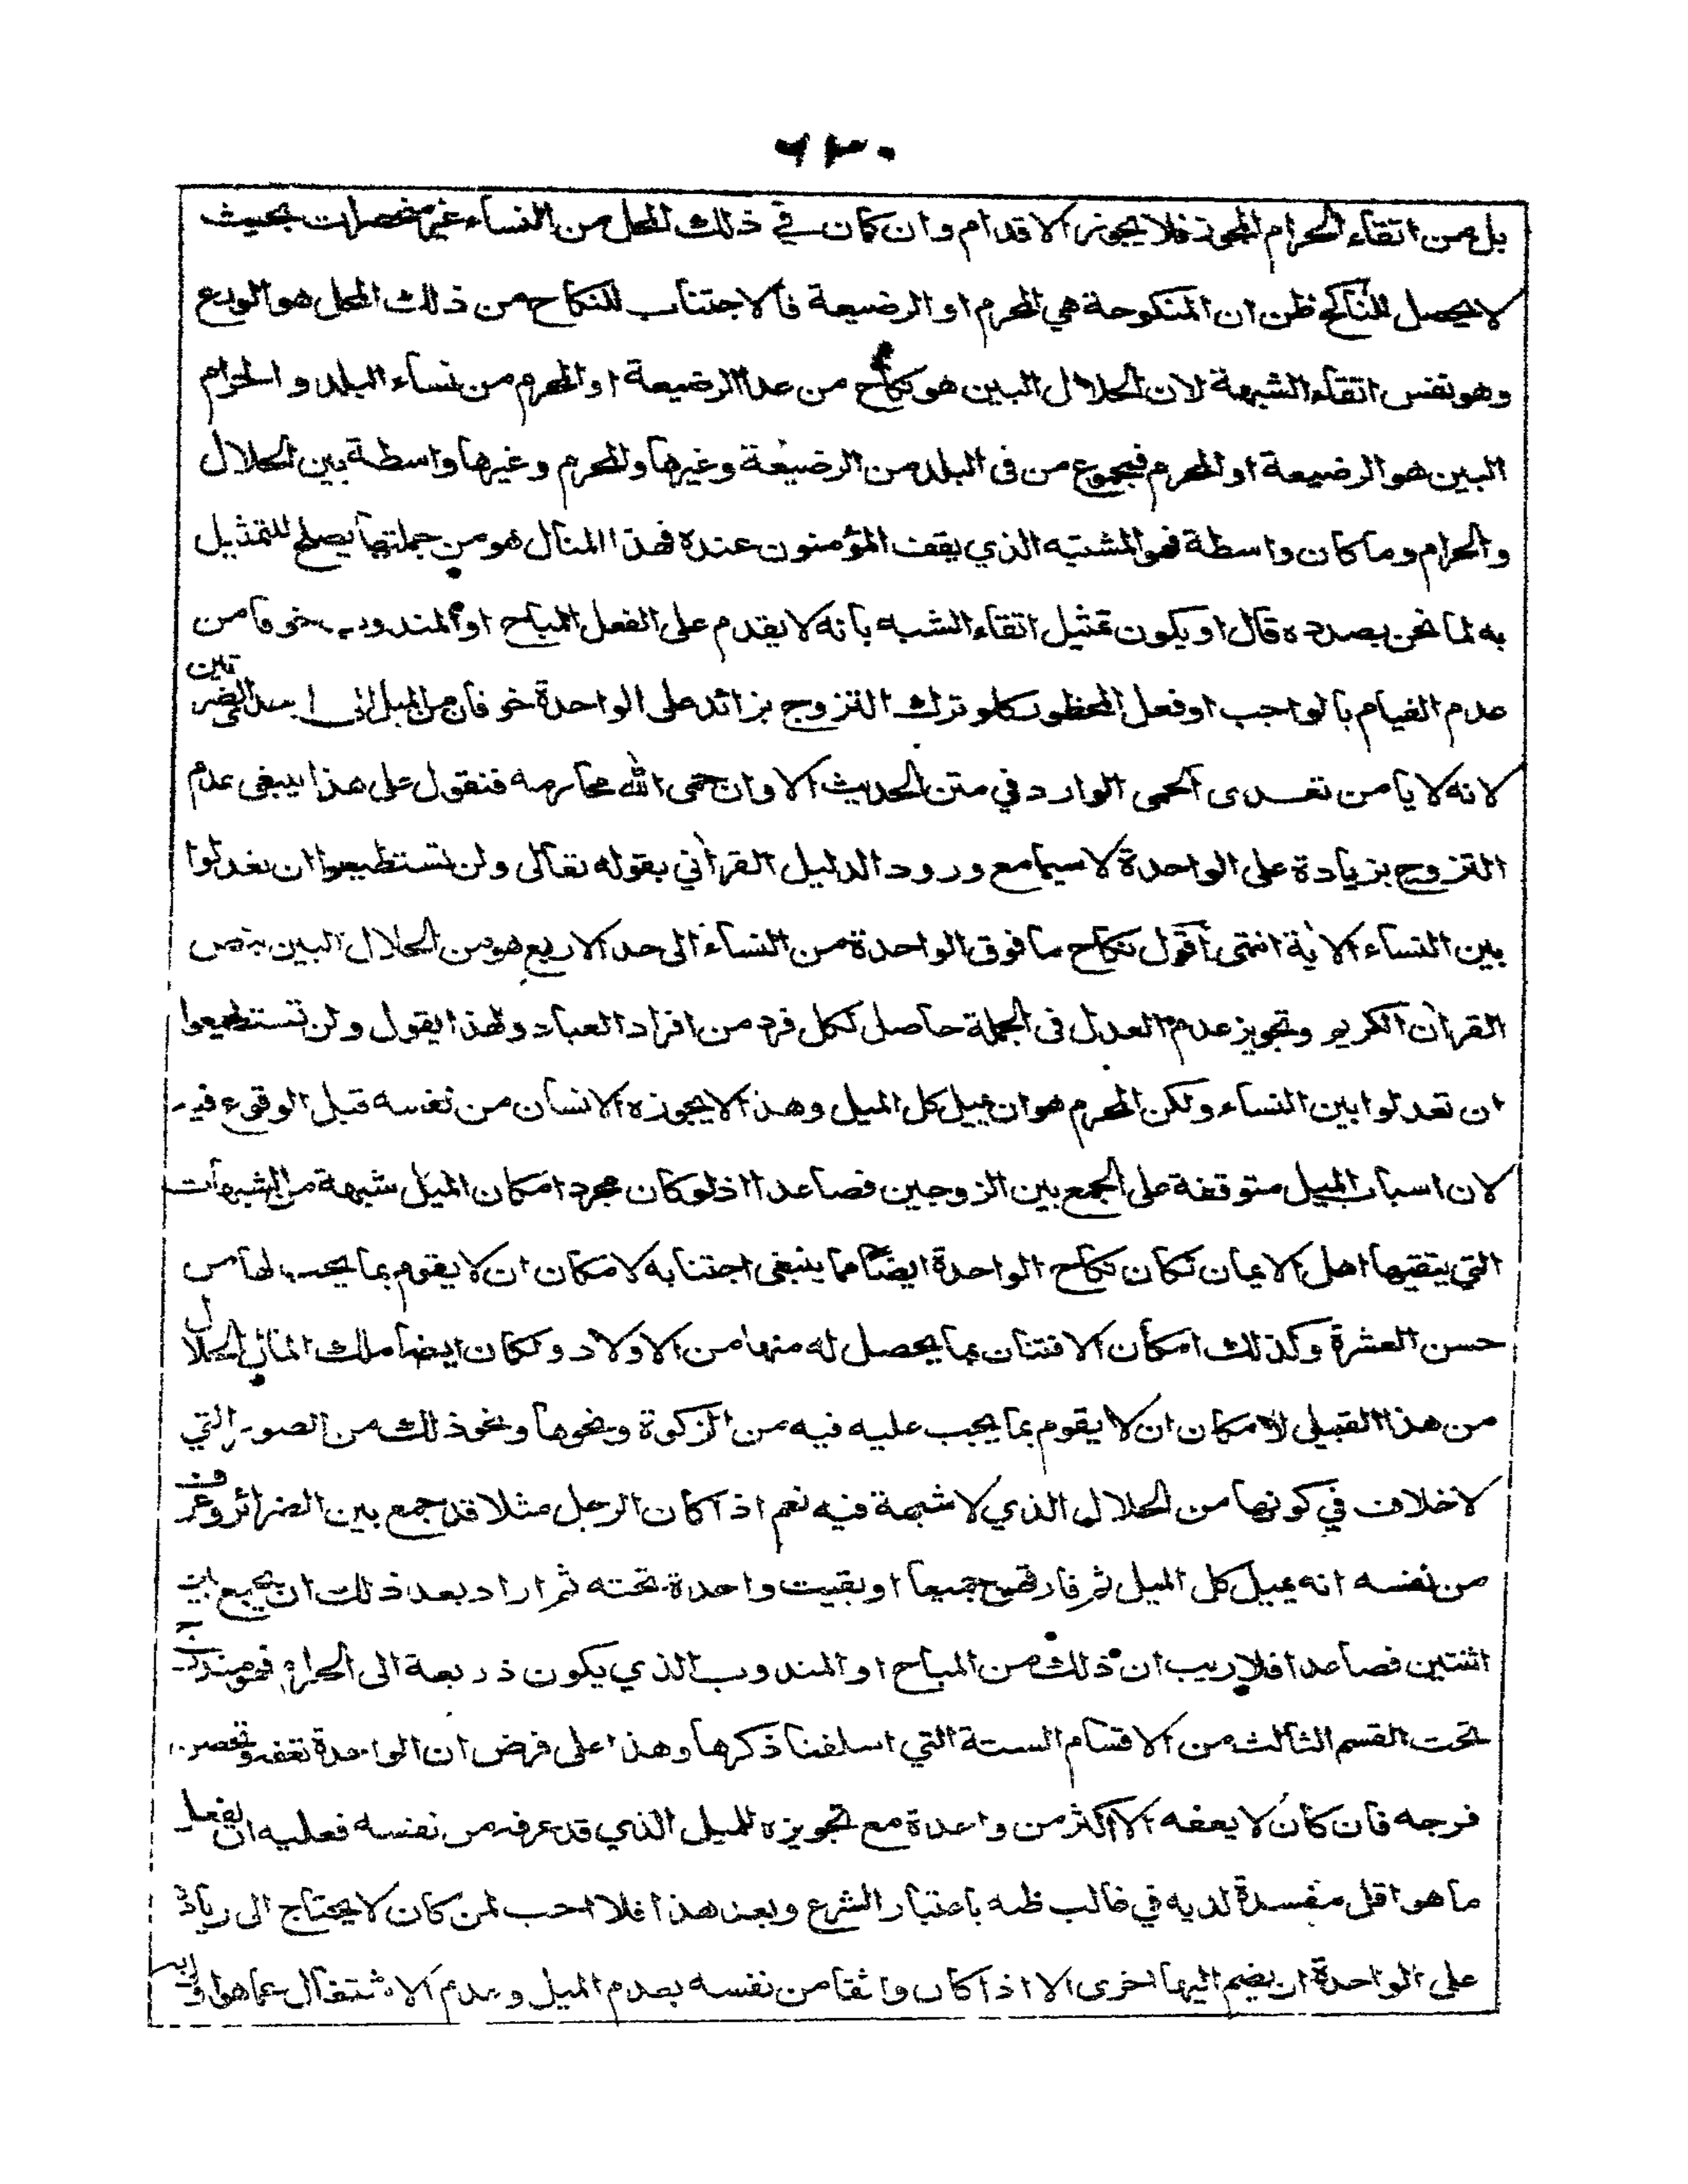 ٦٣٠
بل من اتقاء الحرام المجوز فلا يجوز الاقدام وان كان في ذلك المحل من النساء غير منحصرات بحيث
لا يحصل للناكح ظن ان المنكوحة هي المحرم او الرضيعة فالاجتناب للنكاح من ذلك المحل هو الورع
وهو نفس اتقاء الشبهة لان الحلال البين هو نكاح من عدا الرضيعة او المحرم من نساء البلد والحرام
البين هو الرضيعة او المحرم فمجموع من فى البلد من الرضيعة وغيرها والمحرم وغيرها واسطة بين الحلال
والحرام وما كان واسطة فهو المشتبه الذي يقف المؤمنون عنده فهذا المثال هو من جملتها يصلح للتمثيل
به لما نحن بصدده قال او يكون تمثيل اتقاء الشبه بانه لا يقدم على الفعل المباح او المندوب خوفا من
عدم القيام بالواجب او فعل المحظور كلو ترك التزوج بزائد على الواحدة خوفا من الميل الى احدى الضرتين
لانه لا يامن تعدى الحمى الوارد في متن الحديث الا وان حمى الله محارمه فنقول على هذا ينبغى عدم
التزوج بزيادة على الواحدة لا سيما مع ورود الدليل القراني بقوله تعالى ولن تستطيعوا ان تعدلوا
بين النساء الاية انتهى اقول نكاح ما فوق الواحدة من النساء الى حد الاربع هو من الحلال البين بنص
القران الكريم وتجويز عدم العدل فى الجملة حاصل لكل فرد من افراد العباد ولهذا يقول ولن تستطيعوا
ان تعدلوا بين النساء ولكن المحرم هو ان يميل كل الميل وهذا لا يجوزه الانسان من نفسه قبل الوقوع فيه
لان اسباب الميل متوقفة على الجمع بين الزوجين فصاعدا اذ لو كان مجرد امكان الميل شبهة من الشبهات
التي يتقيها اهل الايمان لكان نكاح الواحدة ايضا مما ينبغى اجتنابه لامكان ان لا يقوم بما يجب لها من
حسن العشرة وكذلك امكان الافتتان بما يحصل له منها من الاولاد ولكان ايضا ملك المال الحلال
من هذا القبيل لامكان ان لا يقوم بما يجب عليه فيه من الزكوة ونحوها ونحو ذلك من الصور التي
لا خلاف في كونها من الحلال الذي لا شبهة فيه نعم اذا كان الرجل مثلا قد جمع بين الضرائر وعرف
من نفسه انه يميل كل الميل ثم فارقهن جميعا او بقيت واحدة تحته ثم اراد بعد ذلك ان يجمع بين
اثنتين فصاعدا فلا ريب ان ذلك من المباح او المندوب الذي يكون ذريعة الى الحرام فهو مندرج
تحت القسم الثالث من الاقسام الستة التي اسلفنا ذكرها وهذا على فرض ان الواحدة تعفه وتحصن
فرجه فان كان لا يعفه الا اكثر من واحدة مع تجويزه للميل الذي قد عرفه من نفسه فعليه ان يفعل
ما هو اقل مفسدة لديه في غالب ظنه باعتبار الشرع وبعد هذا فلا احب لمن كان لا يحتاج الى زيادة
على الواحدة ان يضم اليها اخرى الا اذا كان واثقا من نفسه بعدم الميل وعدم الاشتغال عما هو